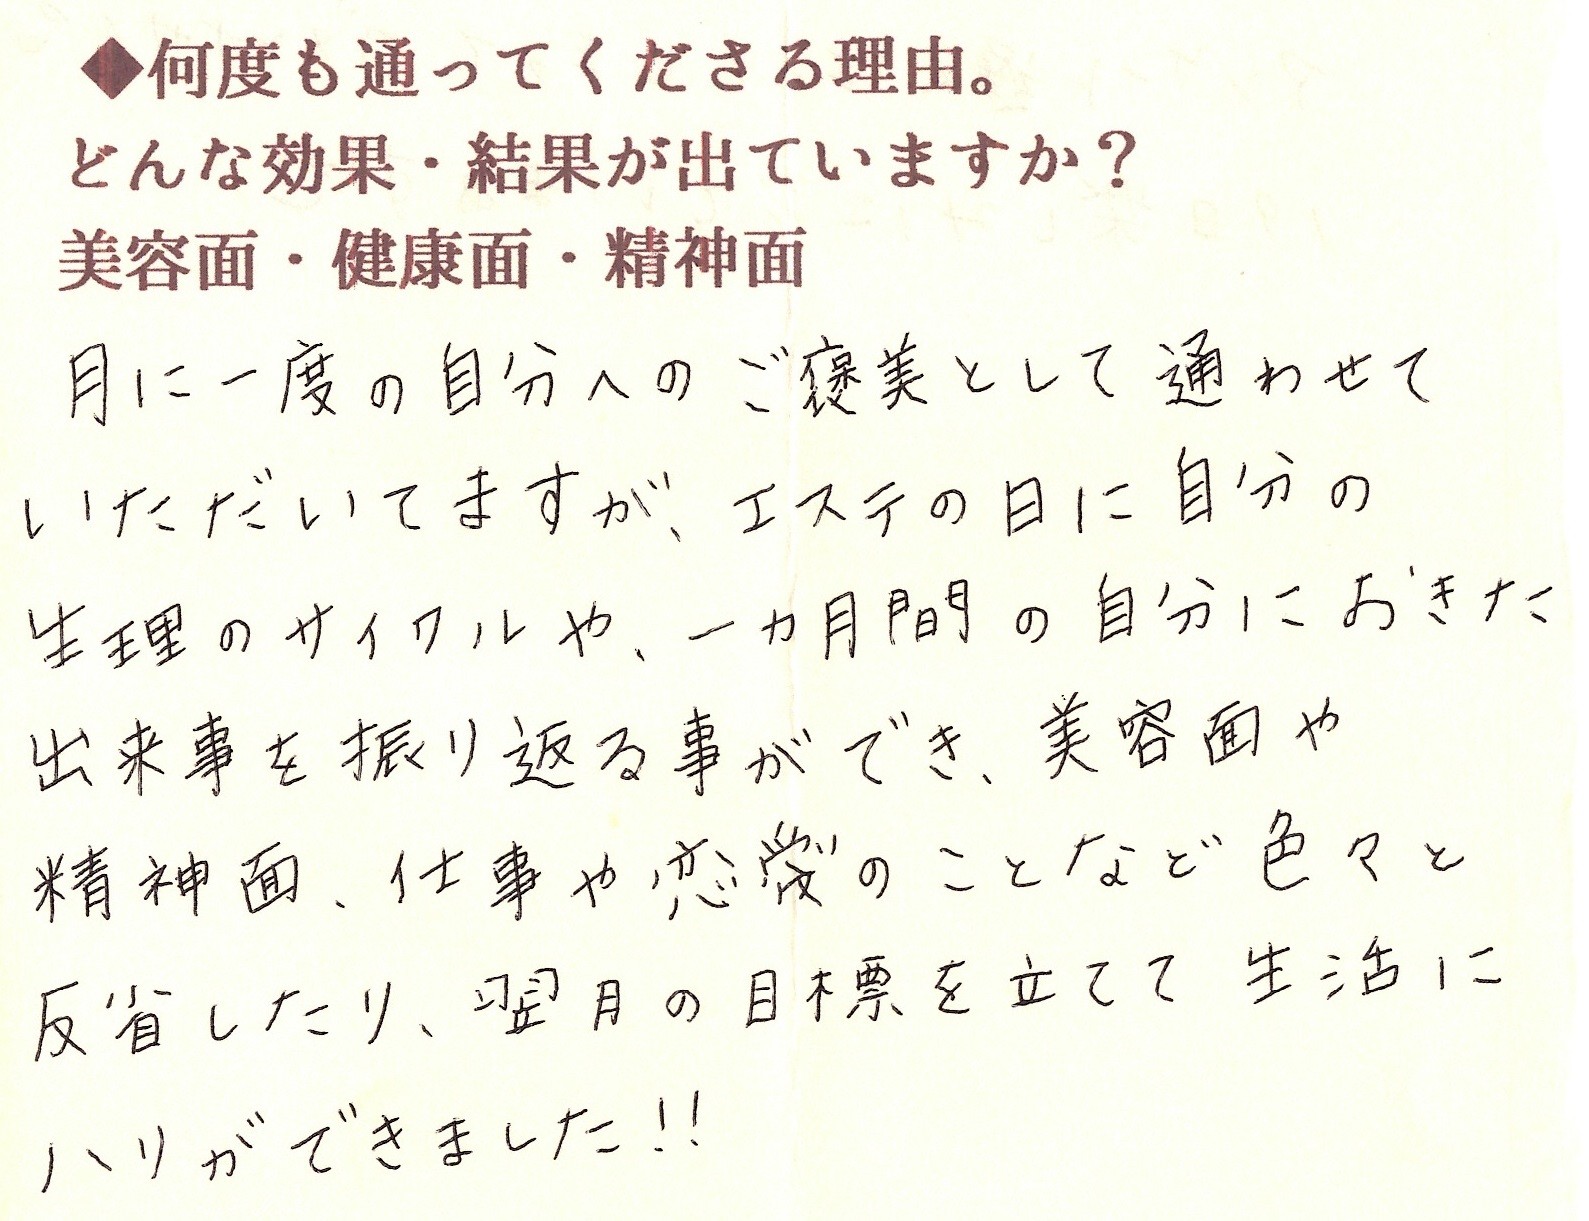 ◆何度も通ってくださる理由。
どんな効果・結果が出ていますか?
美容面・健康面・精神面
月に一度の自分へのご褒美として通わせて
いただいてますが、エステの日に自分の
生理のサイクルや、一カ月間の自分におきた
出来事を振り返る事ができ、美容面や
精神面、仕事や恋愛のことなど色々と
反省したり、翌月の目標を立てて生活に
ハリができました!!